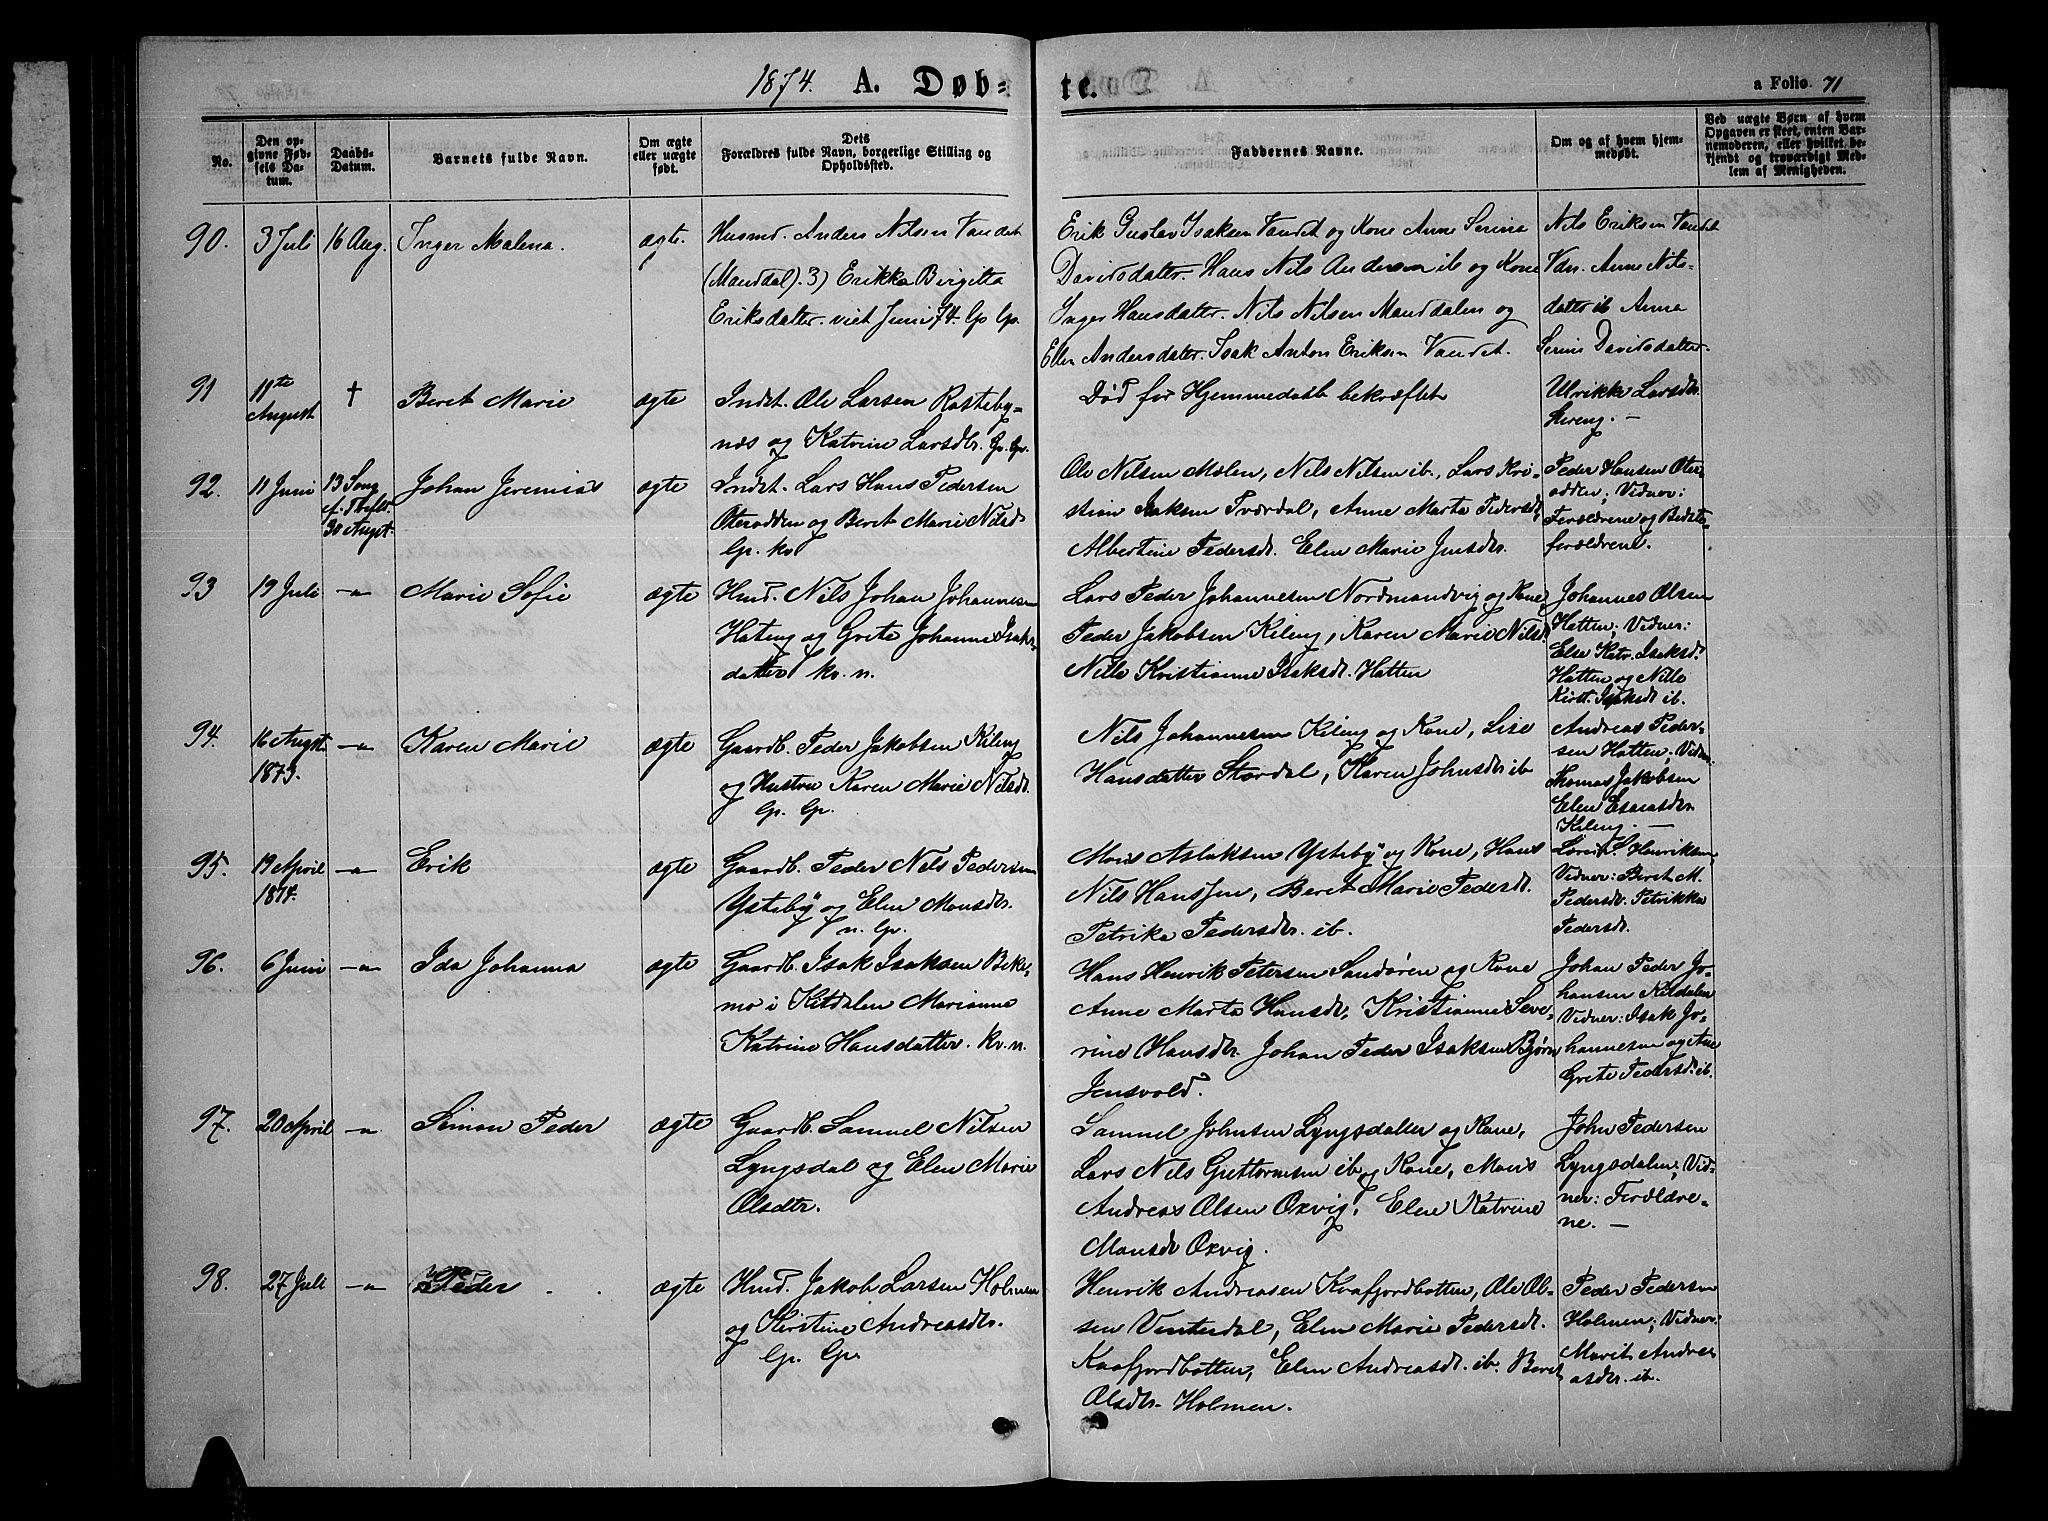 1874. A. Døbte. a Folio. 71
No.
Den opgivne Fødsels Datum.
Daabs-Datum.
Barnets fulde Navn.
Om ægte eller uægte født.
Dets Forældres fulde Navn, borgerlige Stilling og Opholdssted.
Faddernes Navne.
Om og af hvem hjemmedøbt.
Ved uægte Børn af hvem Opgaven er skeet, enten Barnemoderen, eller hvilket bekjendt og troværdigt Medlem af Menigheden.
90. 3 Juli 16 Aug. Inger Malena. ægte.
Husmd. Anders Nilsen Vandet
(Manddal). 3) Erikka Birgitta
Eriksdatter. viet Juni 74. Gp Gp.
Erik Gustav Isaksen Vandet og Kone Anne Serina
Davidsdatter. Hans Nils Andersen ib og Kone
Inger Hansdatter. Nils Nilsen Manddalen og
Ellen Andersdatter. Isak Anton Eriksen Vandet.
Nils Eriksen Vandet
Vdn. Anne Nils-
datter ib Anna
Serine Davidsdatter.
91 11te August † Beret Marie ægte
Indst. Ole Larsen Rasteby-
næs og Katrine Larsdtr. Gp. Gp.
Død før Hjemmedaab bekræftet
Ulrikke Larsdtr.
92. 11 Juni 13 Søng e. Trefld. 30 Augst. Johan Jeremias ægte
Indst. Lars Hans Pedersen
Oterodden og Beret Marie Nilsdr
Gp. kv
Ole Nilsen Mælen, Nils Nilsen ib., Lars Kri-
stian Isaksen Tværdal, Anne Marta Pedersdr,
Albertine Pedersdr. Elen Marie Jensdtr.
Peder Hansen Oter-
odden; Vidner:
Forældrene og Bedste-
forældrene.
93 19 Juli -"- Marie Sofie ægte
Hmd. Nils Johan Johannesen
Hateng og Grete Johanne Isaks-
datter kv. n.
Lars Peder Johannesen Nordmandvig og Kone,
Peder Jakobsen Kileng, Karen Marie Nilsd.
Nille Kristianne Isaksdr. Hatten
Johannes Olsen
Hatten; Vidner:
Else Katr. Isaksdr.
Hatten og Nille
Krist. Isaksdr ib.
94. 16 Augst 1873. -"- Karen Marie ægte
Gaardb. Peder Jakobsen Kileng
og Hustru Karen Marie Nilsdr.
Gp. Gp.
Nils Johannesen Kileng og Kone, Lise
Hansdatter Stordal, Karen Johnsdr ib
Andreas Peder-
sen Hatten; Vidner:
Thomas Jakobsen
Elen Esaiasdtr.
Kileng. —
95. 19 April 1874. -"- Erik ægte
Gaardb. Peder Nils Pedersen
Ysteby og Elen Monsdtr.
n. Gp.
Mons Aslaksen Ysteby og Kone, Hans
Nils Hanssen, Beret Marie Pedersdr.
Petrika Pedersdtr. ib.
Henriksen,
Vidner: Beret M.
Pedersdr. Petrikka
Pedersdr.
96. 6 Juni -"- Ida Johanna ægte
Gaardb. Isak Isaksen Beke-
mo i Kitdalen Marianna
Katrine Hansdatter. kv. n.
Hans Henrik Petersen Sandøren og Kone
Anne Marta Hansdr, Kristianne Seve-
rine Hansdr. Johan Peder Isaksen Bjørn
Jensvold.
Johan Peder Jo-
hansen Kitdalen
Vidner: Isak Jo-
hannesen og Ane
Grete Pedersdr. ib.
97. 20 April -"- Simon Peder ægte
Gaardb. Samuel Nilsen
Lyngsdal og Elen Marie
Olsdtr.
Samuel Johnsen Lyngsdalen og Kone,
Lars Nils Guttormsen ib og Kone, Mons
Andreas Olsen Oxvig, Elen Katrine
Monsdr Oxvig.
John Pedersen
Lyngsdalen; Vid-
ner: Forældre-
ne. —
98. 27 Juli -"- Peder . . ægte
Hmd. Jakob Larsen Holmen
og Kirstine Andreasdtr.
Gp. Gp.
Henrik Andreasen Kaafjordbotten, Ole Ol-
sen Vinterdal, Elen Marie Pedersdr.
Kaafjordbotten, Elen Andreasdr. ib. Beret
Olsdtr. Holmen.
Peder Pedersen
Holmen; Vidner:
Marit Andrea-
asdtr. ib.